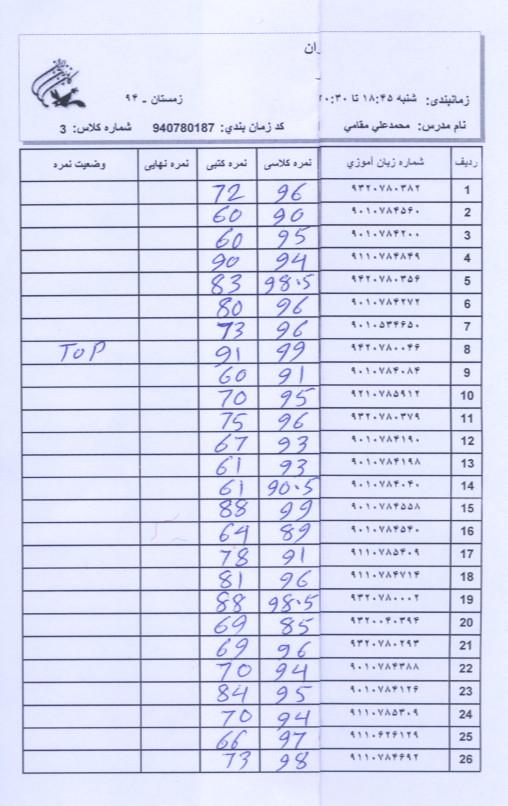 ران
زمانبندی: شنبه ۱۸:۴۵ تا ۲۰:۳۰ زمستان ـ ۹۴
نام مدرس: محمدعلي مقامي کد زمان بندي: 940780187 شماره کلاس: 3
رديف شماره زبان آموزي نمره کلاسی نمره کتبی نمره نهایی وضعیت نمره
1 ۹۳۲۰۷۸۰۳۸۲ 96 72
2 ۹۰۱۰۷۸۴۵۶۰ 90 60
3 ۹۰۱۰۷۸۴۲۰۰ 95 60
4 ۹۱۱۰۷۸۴۸۴۹ 94 90
5 ۹۴۲۰۷۸۰۳۵۶ 98.5 83
6 ۹۰۱۰۷۸۴۲۷۲ 96 80
7 ۹۰۱۰۵۳۴۶۵۰ 96 73
8 ۹۴۲۰۷۸۰۰۴۶ 99 91 TOP
9 ۹۰۱۰۷۸۴۰۸۴ 91 60
10 ۹۲۱۰۷۸۵۹۱۲ 95 70
11 ۹۳۲۰۷۸۰۳۷۹ 96 75
12 ۹۰۱۰۷۸۴۱۹۰ 93 67
13 ۹۰۱۰۷۸۴۱۹۸ 93 61
14 ۹۰۱۰۷۸۴۰۴۰ 90.5 61
15 ۹۰۱۰۷۸۴۵۵۸ 99 88
16 ۹۰۱۰۷۸۴۵۴۰ 89 64
17 ۹۱۱۰۷۸۵۴۰۹ 91 78
18 ۹۱۱۰۷۸۴۷۱۴ 96 81
19 ۹۳۲۰۷۸۰۰۰۲ 98.5 88
20 ۹۳۲۰۰۴۰۳۹۴ 85 69
21 ۹۳۲۰۷۸۰۲۹۳ 96 69
22 ۹۰۱۰۷۸۴۳۸۸ 94 70
23 ۹۰۱۰۷۸۴۱۲۶ 95 84
24 ۹۱۱۰۷۸۵۳۰۹ 94 70
25 ۹۱۱۰۶۲۶۱۲۹ 97 66
26 ۹۱۱۰۷۸۴۶۹۲ 98 73